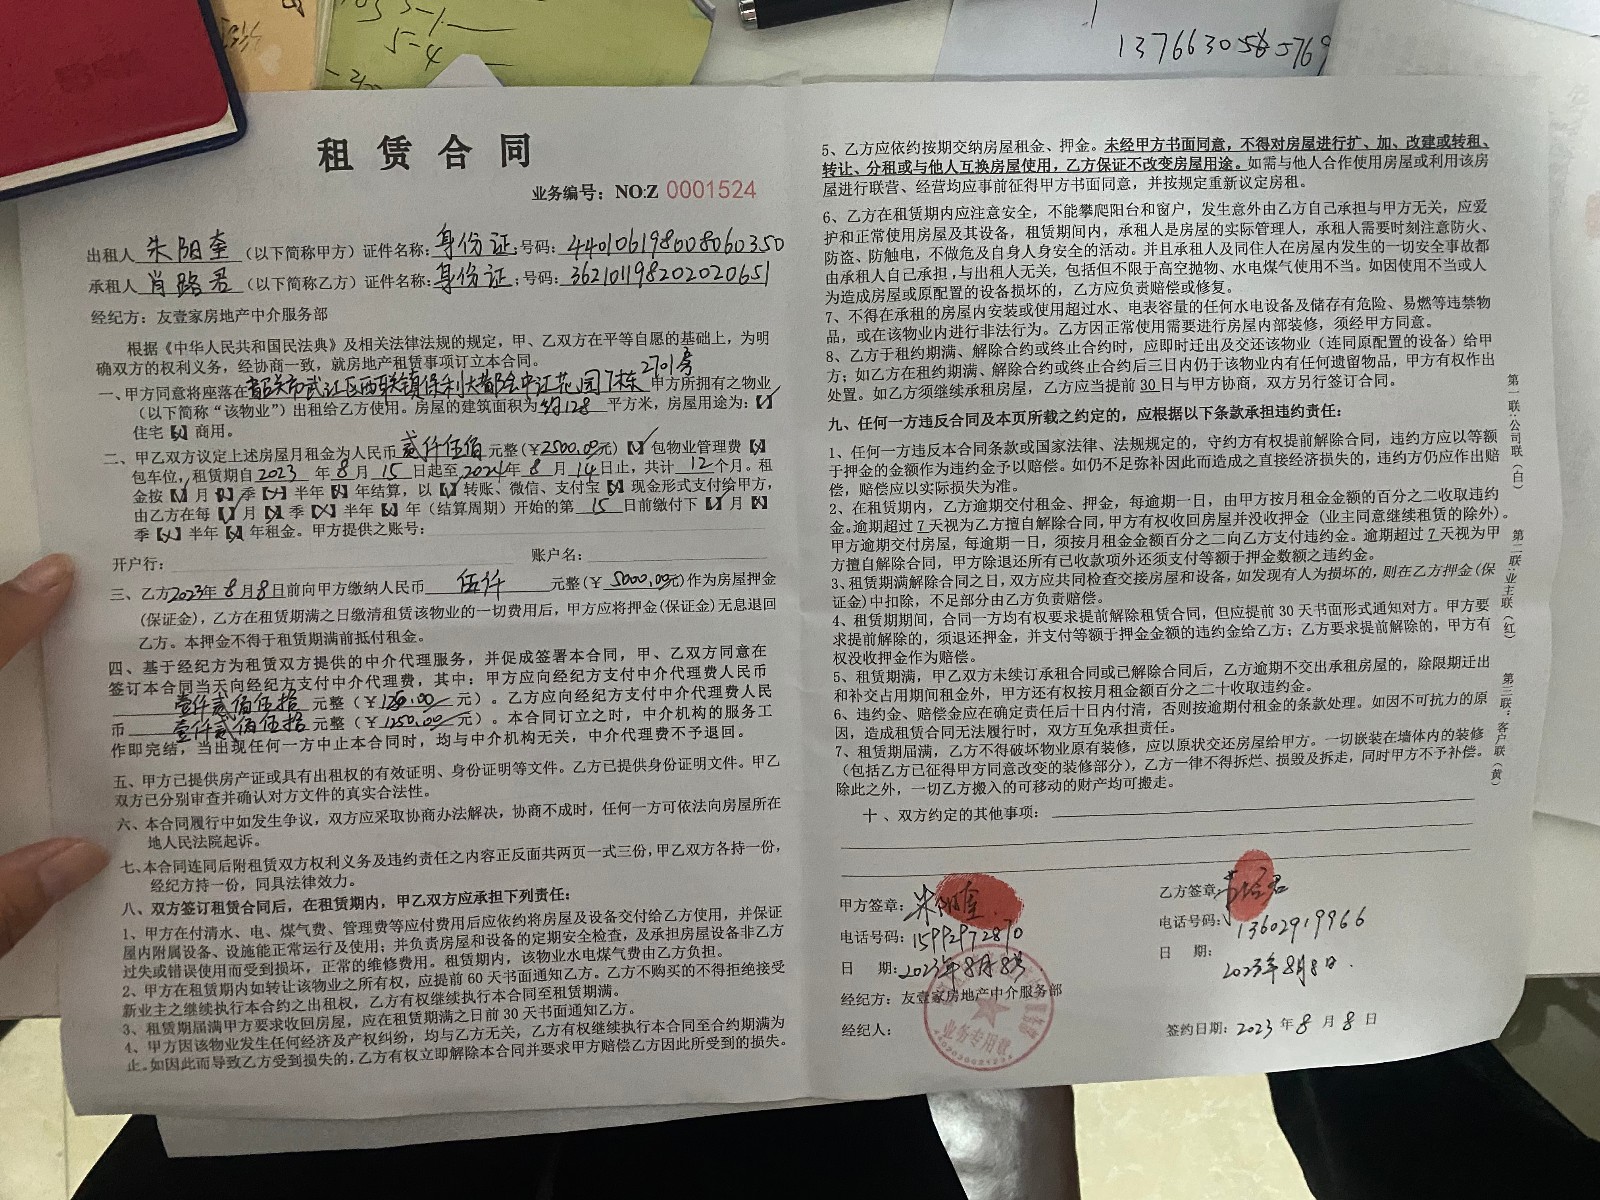 5-4
13766305
5769
租赁合同
业务编号：NO:Z 0001524
出租人 朱阳奎 （以下简称甲方）证件名称：身份证；号码：440106198008060350
承租人 肖路君 （以下简称乙方）证件名称：身份证；号码：362101198202020651
经纪方：友壹家房地产中介服务部
根据《中华人民共和国民法典》及相关法律法规的规定，甲、乙双方在平等自愿的基础上，为明
确双方的权利义务，经协商一致，就房地产租赁事项订立本合同。
一、甲方同意将座落在韶关市武江区西联镇保利大都会中江花园7栋2701房 甲方所拥有之物业
（以下简称“该物业”）出租给乙方使用。房屋的建筑面积为 约128 平方米，房屋用途为：【√】
住宅【×】商用。
二、甲乙双方议定上述房屋月租金为人民币 贰仟伍佰 元整（￥2500.00元）【√】包物业管理费【×】
包车位，租赁期自2023 年 8 月 15 日起至2024年 8 月 14日止，共计 12 个月。租
金按【√】月【×】季【×】半年【×】年结算，以【√】转账、微信、支付宝【×】现金形式支付给甲方，
由乙方在每【√】月【×】季【×】半年【×】年（结算周期）开始的第 15 日前缴付下【√】月【×】
季【×】半年【×】年租金。甲方提供之账号：
开户行： 账户名：
三、乙方2023年8月8日前向甲方缴纳人民币 伍仟 元整（￥ 5000.00元）作为房屋押金
（保证金），乙方在租赁期满之日缴清租赁该物业的一切费用后，甲方应将押金（保证金）无息退回
乙方。本押金不得于租赁期满前抵付租金。
四、基于经纪方为租赁双方提供的中介代理服务，并促成签署本合同，甲、乙双方同意在
签订本合同当天向经纪方支付中介代理费，其中：甲方应向经纪方支付中介代理费人民币
壹仟贰佰伍拾 元整（￥1250.00 元）。乙方应向经纪方支付中介代理费人民
币 壹仟贰佰伍拾 元整（￥1250.00 元）。本合同订立之时，中介机构的服务工
作即完结，当出现任何一方中止本合同时，均与中介机构无关，中介代理费不予退回。
五、甲方已提供房产证或具有出租权的有效证明、身份证明等文件。乙方已提供身份证明文件。甲乙
双方已分别审查并确认对方文件的真实合法性。
六、本合同履行中如发生争议，双方应采取协商办法解决，协商不成时，任何一方可依法向房屋所在
地人民法院起诉。
七、本合同连同后附租赁双方权利义务及违约责任之内容正反面共两页一式三份，甲乙双方各持一份，
经纪方持一份，同具法律效力。
八、双方签订租赁合同后，在租赁期内，甲乙双方应承担下列责任：
1、甲方在付清水、电、煤气费、管理费等应付费用后应依约将房屋及设备交付给乙方使用，并保证
屋内附属设备、设施能正常运行及使用；并负责房屋和设备的定期安全检查，及承担房屋设备非乙方
过失或错误使用而受到损坏，正常的维修费用。租赁期内，该物业水电煤气费由乙方负担。
2、甲方在租赁期内如转让该物业之所有权，应提前60天书面通知乙方。乙方不购买的不得拒绝接受
新业主之继续执行本合约之出租权，乙方有权继续执行本合同至租赁期满。
3、租赁期届满甲方要求收回房屋，应在租赁期满之日前30天书面通知乙方。
4、甲方因该物业发生任何经济及产权纠纷，均与乙方无关，乙方有权继续执行本合同至合约期满为
止。如因此而导致乙方受到损失的，乙方有权立即解除本合同并要求甲方赔偿乙方因此所受到的损失。
5、乙方应依约按期交纳房屋租金、押金。未经甲方书面同意，不得对房屋进行扩、加、改建或转租、
转让、分租或与他人互换房屋使用，乙方保证不改变房屋用途。如需与他人合作使用房屋或利用该房
屋进行联营、经营均应事前征得甲方书面同意，并按规定重新议定房租。
6、乙方在租赁期内应注意安全，不能攀爬阳台和窗户，发生意外由乙方自己承担与甲方无关，应爱
护和正常使用房屋及其设备，租赁期间内，承租人是房屋的实际管理人，承租人需要时刻注意防火、
防盗、防触电，不做危及自身人身安全的活动。并且承租人及同住人在房屋内发生的一切安全事故都
由承租人自己承担，与出租人无关，包括但不限于高空抛物、水电煤气使用不当。如因使用不当或人
为造成房屋或原配置的设备损坏的，乙方应负责赔偿或修复。
7、不得在承租的房屋内安装或使用超过水、电表容量的任何水电设备及储存有危险、易燃等违禁物
品，或在该物业内进行非法行为。乙方因正常使用需要进行房屋内部装修，须经甲方同意。
8、乙方于租约期满、解除合约或终止合约时，应即时迁出及交还该物业（连同原配置的设备）给甲
方；如乙方在租约期满、解除合约或终止合约后三日内仍于该物业内有任何遗留物品，甲方有权作出
处置。如乙方须继续承租房屋，乙方应当提前30日与甲方协商，双方另行签订合同。
九、任何一方违反合同及本页所载之约定的，应根据以下条款承担违约责任：
1、任何一方违反本合同条款或国家法律、法规规定的，守约方有权提前解除合同，违约方应以等额
于押金的金额作为违约金予以赔偿。如仍不足弥补因此而造成之直接经济损失的，违约方仍应作出赔
偿，赔偿应以实际损失为准。
2、在租赁期内，乙方逾期交付租金、押金，每逾期一日，由甲方按月租金金额的百分之二收取违约
金。逾期超过7天视为乙方擅自解除合同，甲方有权收回房屋并没收押金（业主同意继续租赁的除外）。
甲方逾期交付房屋，每逾期一日，须按月租金金额百分之二向乙方支付违约金。逾期超过7天视为甲
方擅自解除合同，甲方除退还所有已收款项外还须支付等额于押金数额之违约金。
3、租赁期满解除合同之日，双方应共同检查交接房屋和设备，如发现有人为损坏的，则在乙方押金（保
证金）中扣除，不足部分由乙方负责赔偿。
4、租赁期期间，合同一方均有权要求提前解除租赁合同，但应提前30天书面形式通知对方。甲方要
求提前解除的，须退还押金，并支付等额于押金金额的违约金给乙方；乙方要求提前解除的，甲方有
权没收押金作为赔偿。
5、租赁期满，甲乙双方未续订承租合同或已解除合同后，乙方逾期不交出承租房屋的，除限期迁出
和补交占用期间租金外，甲方还有权按月租金额百分之二十收取违约金。
6、违约金、赔偿金应在确定责任后十日内付清，否则按逾期付租金的条款处理。如因不可抗力的原
因，造成租赁合同无法履行时，双方互免承担责任。
7、租赁期届满，乙方不得破坏物业原有装修，应以原状交还房屋给甲方。一切嵌装在墙体内的装修
（包括乙方已征得甲方同意改变的装修部分），乙方一律不得拆烂、损毁及拆走，同时甲方不予补偿。
除此之外，一切乙方搬入的可移动的财产均可搬走。
十、双方约定的其他事项：
甲方签章：朱阳奎
电话号码：15992972870
日 期：2023年8月8号
经纪方：友壹家房地产中介服务部
经纪人：
业务专用章
乙方签章：肖路君
电话号码：13602919966
日 期：
2023年8月8日.
签约日期：2023 年 8 月 8 日
第一联：公司联（白）
第二联：业主联（红）
第三联：客户联（黄）